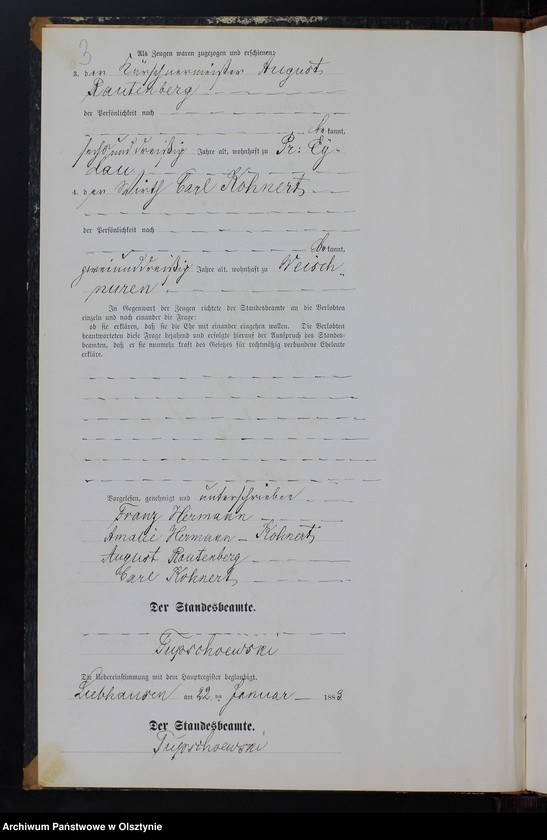 3
Als Zeugen waren zugezogen und erschienen:
3. der Kürschnermeister August
Rautenberg
der Persönlichkeit nach
be kannt,
sechsunddreißig Jahre alt, wohnhaft zu Pr: Ey-
lau
4. der Wirth Carl Kohnert
der Persönlichkeit nach
be kannt,
zweiunddreißig Jahre alt, wohnhaft zu Weisch-
nuren.
In Gegenwart der Zeugen richtete der Standesbeamte an die Verlobten
einzeln und nach einander die Frage:
ob sie erklären, daß sie die Ehe mit einander eingehen wollen. Die Verlobten
beantworteten diese Frage bejahend und erfolgte hierauf der Ausspruch des Standes-
beamten, daß er sie nunmehr kraft des Gesetzes für rechtmäßig verbundene Eheleute
erkläre.
Vorgelesen, genehmigt und unterschrieben
Franz Hermann
Amalie Hermann – Kohnert
August Rautenberg
Carl Kohnert
Der Standesbeamte.
Die Uebereinstimmung mit dem Hauptregister beglaubigt.
Liebhausen am 22 ten Januar 1883.
Der Standesbeamte.
Archiwum Państwowe w Olsztynie